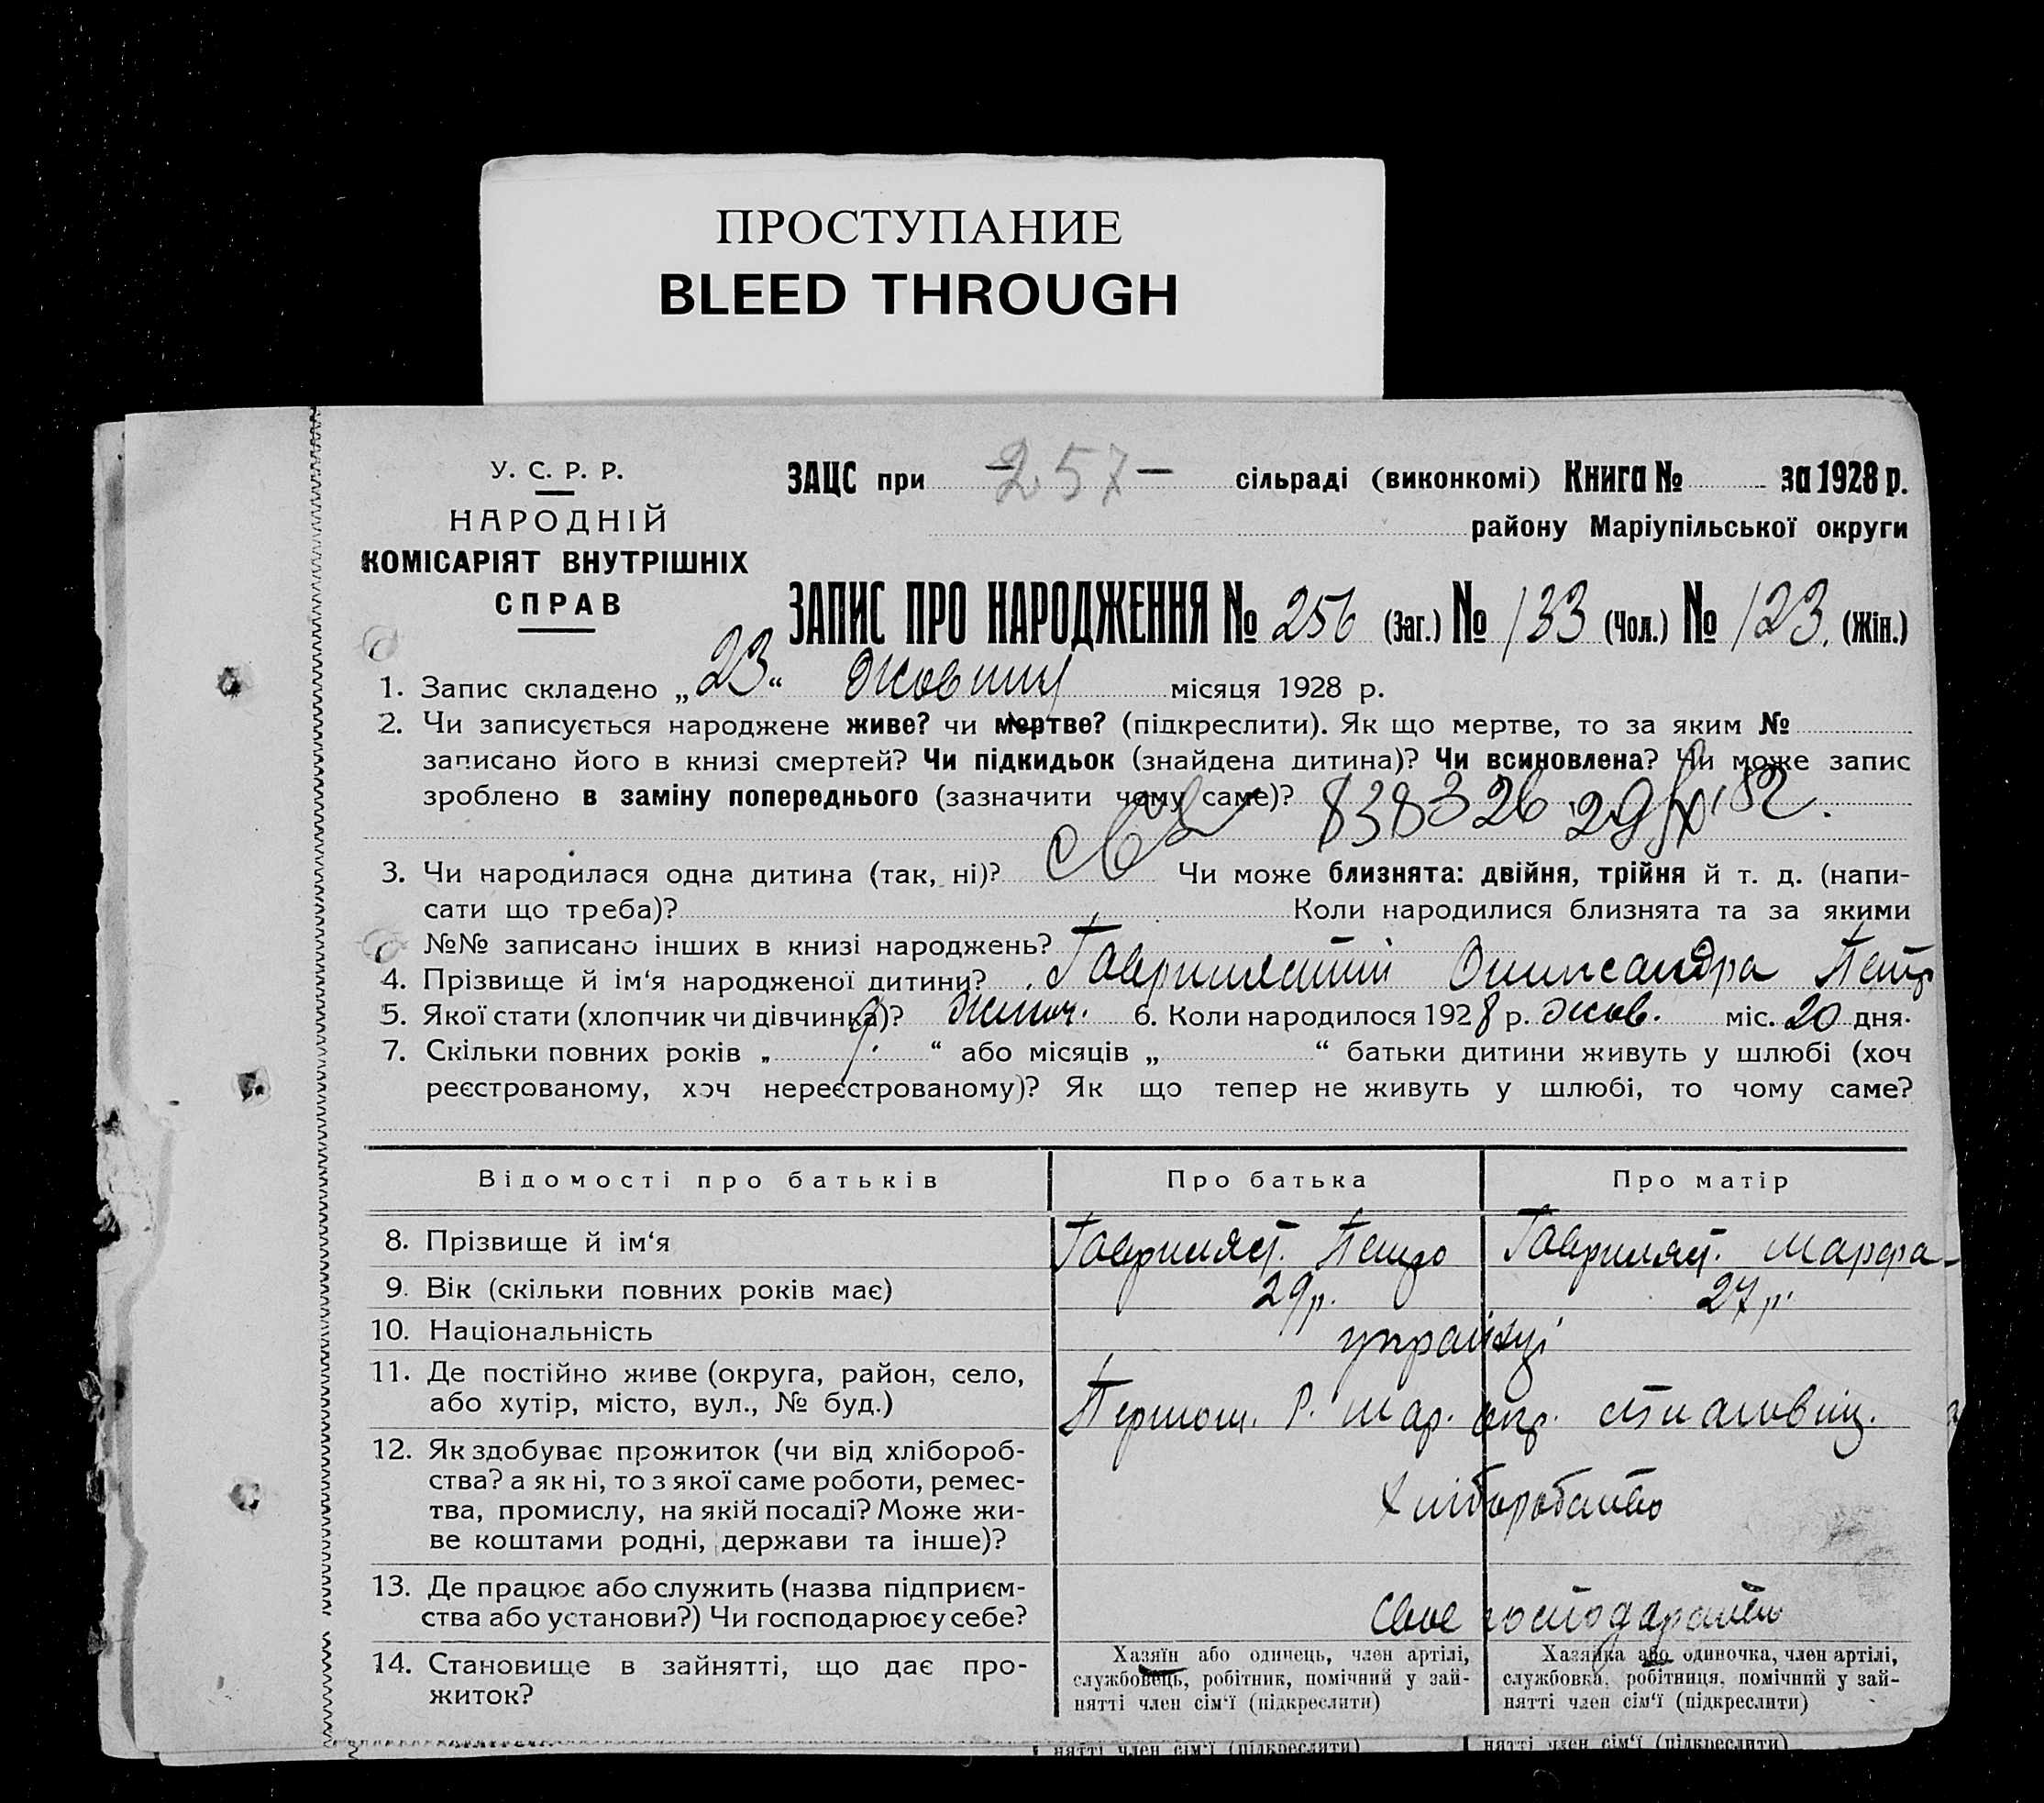 ПРОСТУПАНИЕ
BLEED THROUGH
У. С. Р. Р.
НАРОДНІЙ
КОМІСАРІЯТ ВНУТРІШНІХ
СПРАВ
ЗАЦС при -257- сільраді (виконкомі) Книга № за 1928 р.
району Маріупільської округи
ЗАПИС ПРО НАРОДЖЕННЯ № 256 (Заг.) № 133 (Чол.) № 123. (Жін.)
1. Запис складено „23“ Жовтня місяця 1928 р.
2. Чи записується народжене живе? чи мертве? (підкреслити). Як що мертве, то за яким №
записано його в книзі смертей? Чи підкидьок (знайдена дитина)? Чи всиновлена? Чи може запис
зроблено в заміну попереднього (зазначити чому саме)? 838326
3. Чи народилася одна дитина (так, ні)? Чи може близнята: двійня, трійня й т. д. (напи-
сати що треба)? Коли народилися близнята та за якими
№№ записано інших в книзі народжень?
4. Прізвище й ім‘я народженої дитини? Олександра Петр
5. Якої стати (хлопчик чи дівчинка)? Жіноч. 6. Коли народилося 1928 р. Жов. міс. 20 дня.
7. Скільки повних років „ 9. “ або місяців „ “ батьки дитини живуть у шлюбі (хоч
реєстрованому, хоч нереєстрованому)? Як що тепер не живуть у шлюбі, то чому саме?
Відомості про батьків Про батька Про матір
8. Прізвище й ім‘я Петро Марфа
9. Вік (скільки повних років має) 29 р. 27 р.
10. Національність українці
11. Де постійно живе (округа, район, село,
або хутір, місто, вул., № буд.) Р. Мар. окр.
12. Як здобуває прожиток (чи від хлібороб-
ства? а як ні, то з якої саме роботи, ремес-
тва, промислу, на якій посаді? Може жи-
ве коштами родні, держави та інше)? Хліборобство
13. Де працює або служить (назва підприєм-
ства або установи?) Чи господарює у себе? Своє господарство
14. Становище в зайнятті, що дає про-
житок?
Хазяїн або одинець, член артілі,
службовець, робітник, помічний у зай-
нятті член сім‘ї (підкреслити)
Хазяйка або одиночка, член артілі,
службовка, робітниця, помічний у зай-
нятті член сім‘ї (підкреслити)
нятті член сім‘ї (підкреслити) нятті член сім‘ї (підкреслити)